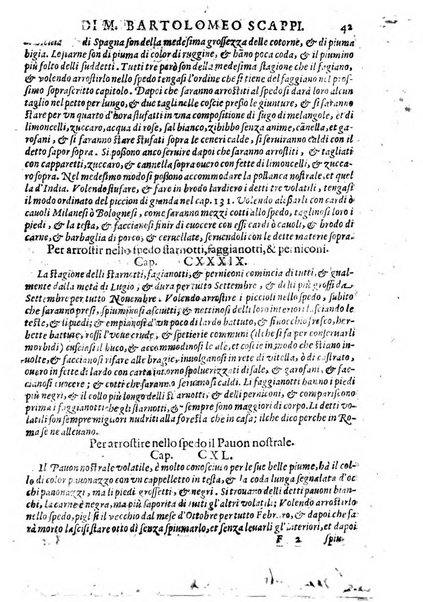 DI M. BARTOLOMEO SCAPPI. 42
di Spagna son della medesima grossezza delle cotorne, & di piuma
bigia. Le starne son di piuma di color di ruggine, & hāno poca coda, & il piumino
più folto delli sudditti. Tutti tre però son della medesima stagione che il fagano,
& volendo arrostirlo nello spedo tengasi l'ordine che si tiene del faggiano nel pros
simo soprascritto capitolo. Dapoi che saranno arrostiti nello spedo si darà loro alcun
taglio nel petto per lungo, & due tagli nelle due coscie presso le giunture, & si faran
no stare per un quarto d'hora stuffati in una compositione di sugo di melangole, & di
limoncelli, zuccaro, acqua di rose, sal bianco, zibibbo senza anime, cānella, & ga
rofani, & come si saranno fatti stare stufati sopra le ceneri calde, si serviranno caldi con il
detto sapor sopra. Si possono anco servire dapoi che saranno arrostiti, & tagliati
con capparetti, zuccaro, & cannella sopra ouero con fette di limoncelli, & zucca-
ro sopra. Nel medesimo modo si possono accommodare la pollanca nostrale, et quel
la d'India. Volendo stufare, & far in brodo lardiero i detti tre volatili, tengasi
il modo ordinato del piccion di granda nel cap. 131. Volendo alessarli con cardi ò
cauoli Milanesi ò Bolognesi, come saranno mezzi cotti allo spedo, taglinosi loro i
piedi, & la testa, & faccianosi finir di cuocere con essi cardi ò cauoli, & brodo di
carne, & barbaglia di porco, & ceruellate, seruendoli con le dette materie sopra.
Per arrostir nello spedo starnotti, faggianotti, & perniconi.
Cap. CXXXIX.
La stagione delli starnotti, fagianotti, & perniconi comincia di tutti egual-
mente dalla metà di Luglio, & dura per tutto Settembre, & di essi grandi da
Settembre per tutto Nouembre. Volendo arrostire i piccioli nello spedo, subito
che saranno presi, spiuminosi asciutti, & nettinosi delli loro interiori, lasciando le
teste, & li piedi; & empianosi d'un poco di lardo battuto, & finocchio fresco, her-
herbe battute, rossi l'oua crude, & spetierie communi (il che si fa per conseruarli
morbidi) cuscinosi li buchi, & accommodinosi le ali & coscie in modo che stiano in-
uolte, & faccianosi rifare alle bragie, inuolganosi in rete di vitella, ò di castrato,
ouero in fette di lardo con carta intorno spoluerizzati di sale, & garofani, & fac-
cianosi cuocere; & cotti che saranno seruanosi caldi. Li faggianotti hanno i piedi
più negri, & il collo più longo delli starnotti, & delli perniconi, & compartita
comparandogli faggianotti che gli starnotti, & sempre sono maggiori di corpo. Li detti
volatili son sempre migliori assai di campagna che in casa; il che dico perche in Ro-
ma se ne alleuano.
Per arrostire nello spedo il Pauon nostrale.
Cap. CXL.
Il Pauon nostrale volatile, è molto conosciuto per le sue belle piume, hà il col-
lo di color pauonazzo con un cappelletto in testa, & la coda lunga segnalata d'oc
chi panonazzi, ma li piedi grossetti, & negri. Si trouano delli detti pauoni bian-
chi, & leonati, ma più saporita di tutti gl'altri volatili. Volendo arrostirlo
nello spedo, piglisi il vecchio dal mese d'Ottobre per tutto Febraro, & dapoi che sa
rà morto lascisi stare otto dì senza spiumarlo, et senza leuarli gl'interiori, et dapoi
F 2 spiu-